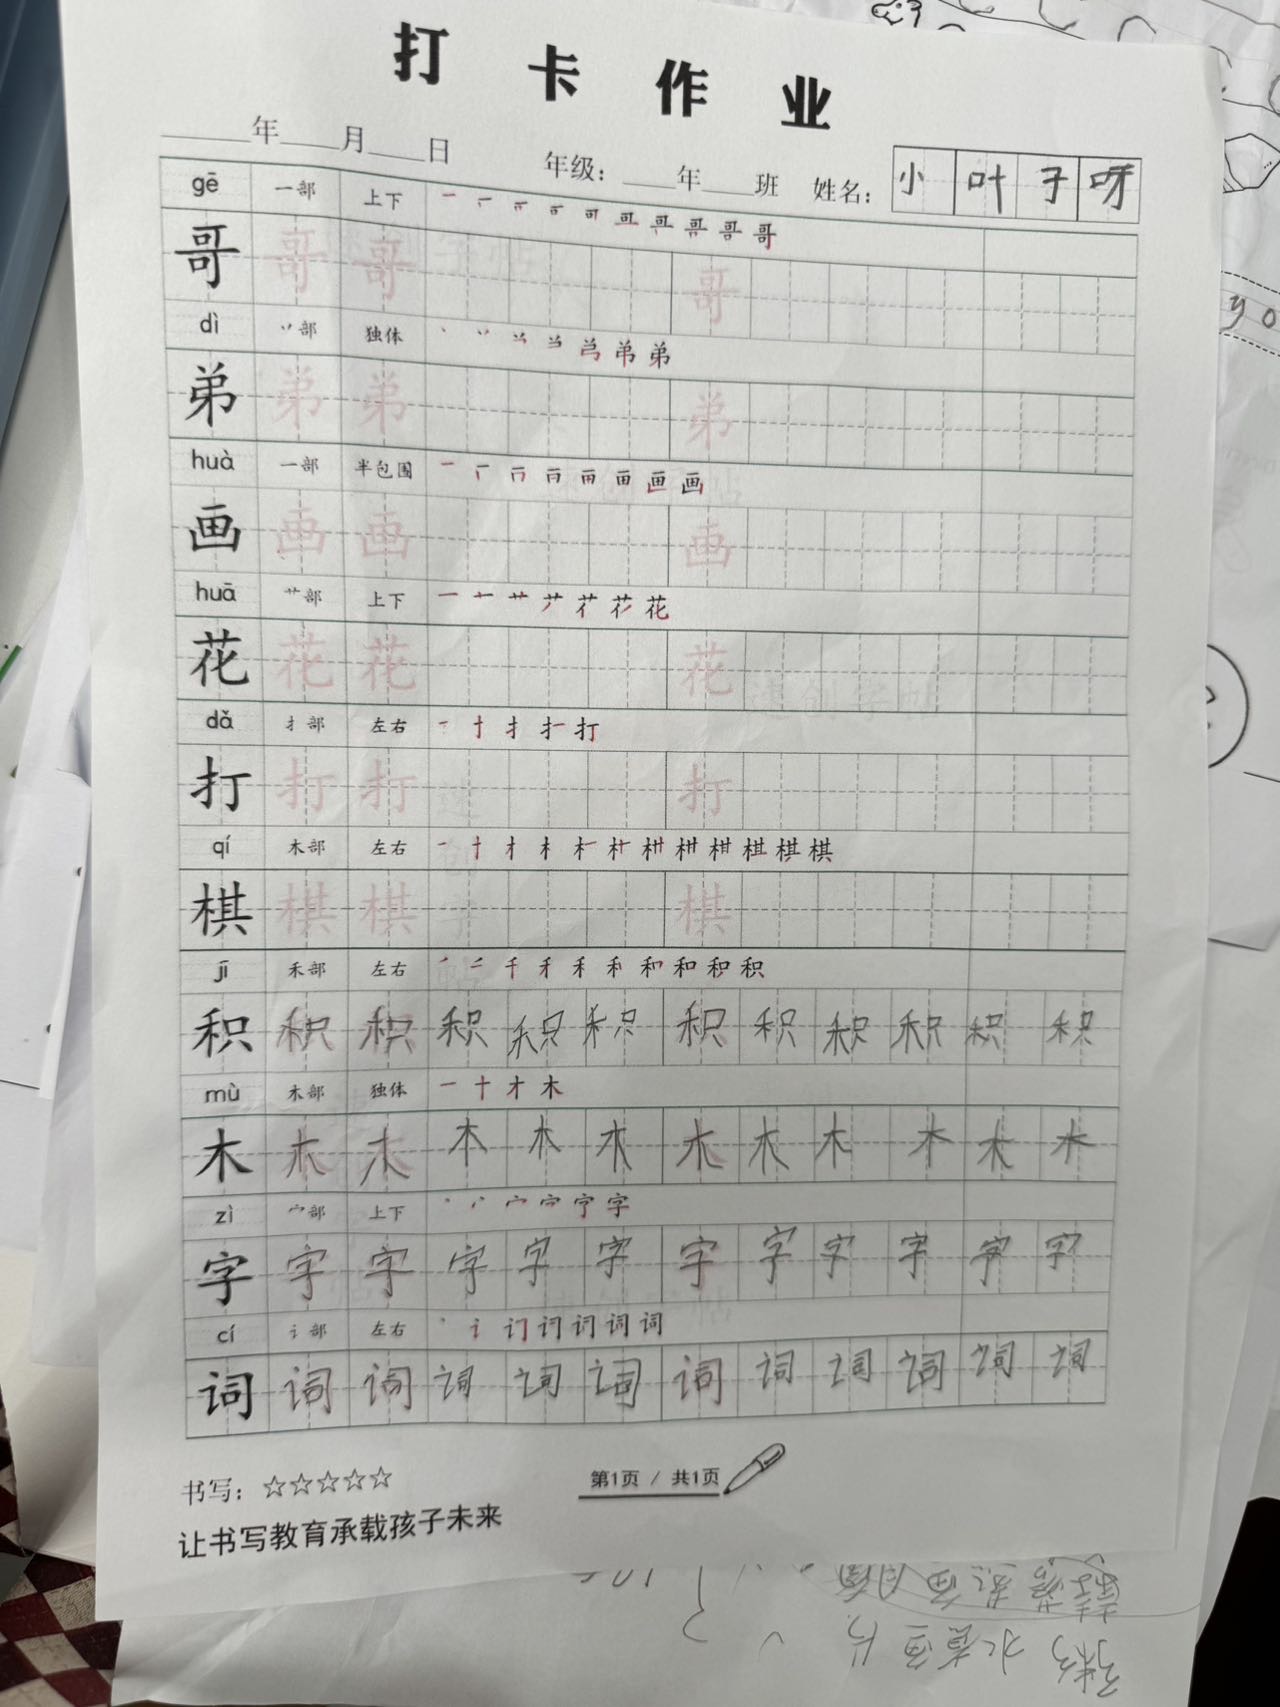 打 卡 作 业
____年____月____日 年级：____年____班 姓名： 小 叶 子 呀
gē 一部 上下 哥
哥 哥 哥 哥
dì 丷部 独体 弟
弟 弟 弟 弟
huà 一部 半包围 画
画 画 画 画
huā 艹部 上下 花
花 花 花 花
dǎ 扌部 左右 一 十 扌 打
打 打 打 打
qí 木部 左右 一 十 才 木 棋
棋 棋 棋 棋
jī 禾部 左右 千 禾 和 积
积 积 积 积 积 积 积 积 积 积 积 积 积
mù 木部 独体 一 十 才 木
木 木 木 木 木 木 木 木 木 木 木 木 木
zì 宀部 上下 宀 字
字 字 字 字 字 字 字 字 字 字 字 字 字
cí 讠部 左右 讠 订 词 词
词 词 词 词 词 词 词 词 词 词 词 词 词
书写：☆☆☆☆☆ 第1页 / 共1页
让书写教育承载孩子未来